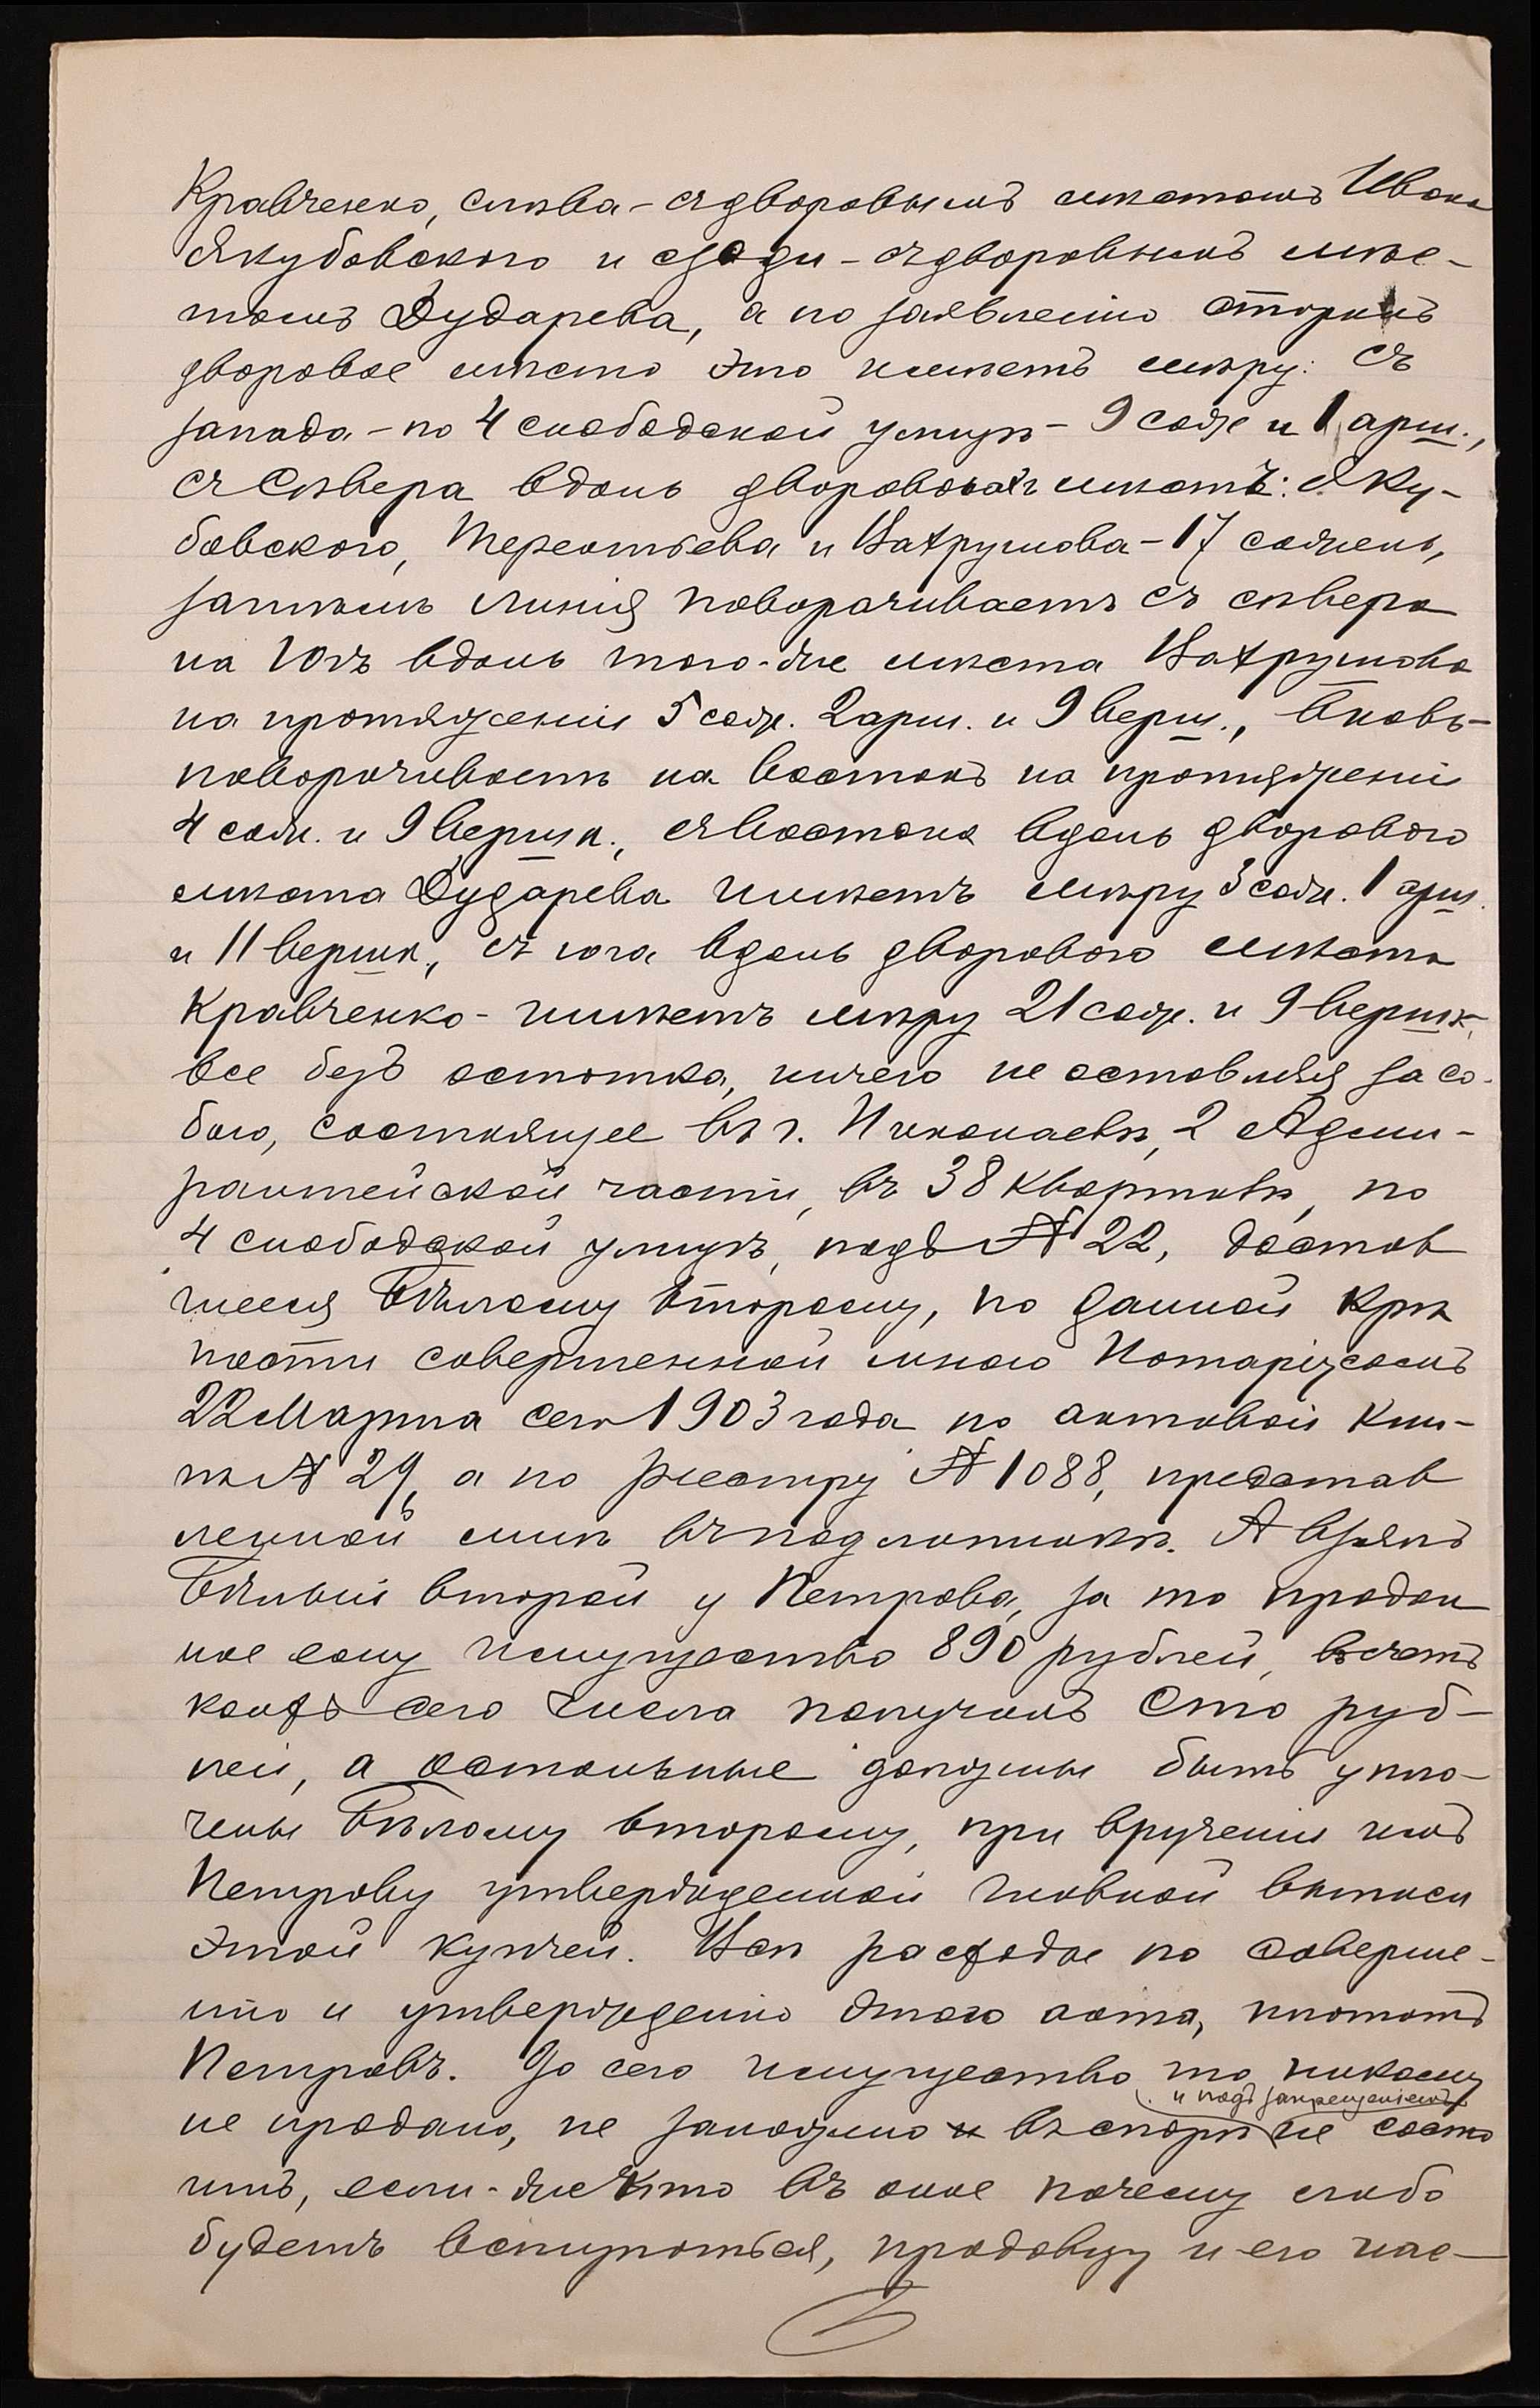 Кравченко, слѣва - съ дворовымъ мѣстомъ Ивана
Якубовскаго и сзади - съ дворовымъ мѣс-
томъ Дударева, а по заявленію сторонъ
дворовое мѣсто это имѣетъ мѣру: съ
запада - по 4 слободской улицѣ - 9 саж и 1 арш.,
съ Сѣвера вдоль дворовыхъ мѣстъ: Яку-
бовскаго, Терентьева и Вахрушова - 17 сажень,
затѣмъ линія поворачиваетъ съ сѣвера
на Югъ вдоль того-же мѣста Вахрушова
на протяженіи 5 саж. 2 арш. и 9 верш., вновь
поворачиваетъ на востокъ на протяженіи
4 саж. и 9 вершк., съ востока вдоль дворового
мѣста Дударева имѣетъ мѣру 3 саж. 1 арш.
и 11 вершк., съ юга вдоль дворового мѣста
Кравченко - имѣетъ мѣру 21 саж. и 9 вершк,
все безъ остатка, ничего не оставляя за со-
бою, состоящее въ г. Николаевѣ, 2 Адми-
ралтейской части, въ 38 кварталѣ, по
4 слободской улицѣ, подъ № 22, достав
шееся Бѣлому второму, по данной крѣ
пости совершенной мною Нотаріусомъ
22 Марта сего 1903 года по актовой кни-
гѣ № 29, а по реестру № 1088, представ
ленной мнѣ въ подлинникѣ. А взялъ
Бѣлый второй у Петрова, за то продан
ное ему имущество 890 рублей, въ счетъ
коихъ сего числа получилъ сто руб-
лей, а остальные должны быть упла-
чены Бѣлому второму, при врученіи имъ
Петрову утвержденной главной выписи
этой купчей. Всѣ расходы по соверше-
нію и утвержденію этого акта, платитъ
Петровъ. До сего имущество то никому
и подъ запрещеніемъ
не продано, не заложено и въ спорѣ не состо
итъ, если-же кто въ оное почему либо
будетъ вступаться, продавцу и его нас-